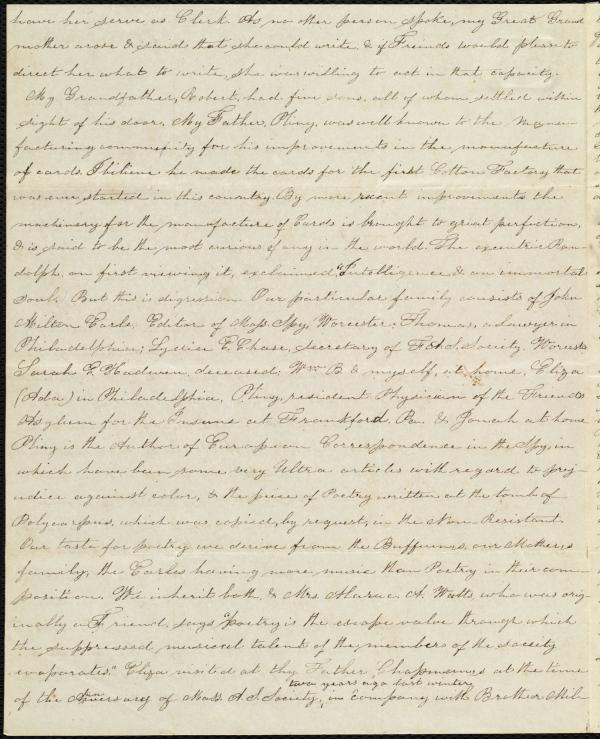 have her serve as Clerk. As no other person spoke, my Great Grand
mother arose & said that she could write, & if Friends would please to
direct her what to write, she was willing to act in that capacity.
My Grandfather, Robert, had five sons, all of whom settled within
sight of his door. My Father, Pliny, was well known to the manu-
facturing community for his improvements in the manufacture
of cards. I believe he made the cards for the first Cotton Factory that
was ever started in this country. By more recent improvements the
machinery for the manufacture of Cards is brought to great perfection,
& is said to be the most curious of any in the world. The excentric Ran-
dolph, on first viewing it, exclaimed, "Intelligence & an immortal
soul. But this is digression. Our particular family consists of John
Milton Earle, Editor of Mass. Spy, Worcester; Thomas, a Lawyer in
Philadelphia; Lydia E. Chase, Secretary of F. A. S. Society, Worcest.
Sarah E. Hadwen, deceased, Wm B. & myself, at home, Eliza
(Ada) in Philadelphia, Pliny, resident Physician of the Friends
Asylum for the Insane at Frankford, Pa. & Jonah at home
Pliny is the Author of European Correspondence in the Spy, in
which have been some very Ultra articles with regard to prej-
udice against color, & the piece of Poetry written at the tomb of
Polycarpus, which was copied, by request, in the Non Resistant.
Our taste for poetry we derive from the Buffums, our Mother's
family, the Earles having more music than Poetry in their com-
position. We inherit both, & Mrs. A. Watts, who was orig-
inally a Friend, says "poetry is the escape valve through which
the suppressed musical talent of the members of the society
evaporates." Eliza visited at thy Father Chapman's at the time
two years ago last winter
of the Anniversary of Mass. A. S. Society, in company with Brother Mil-